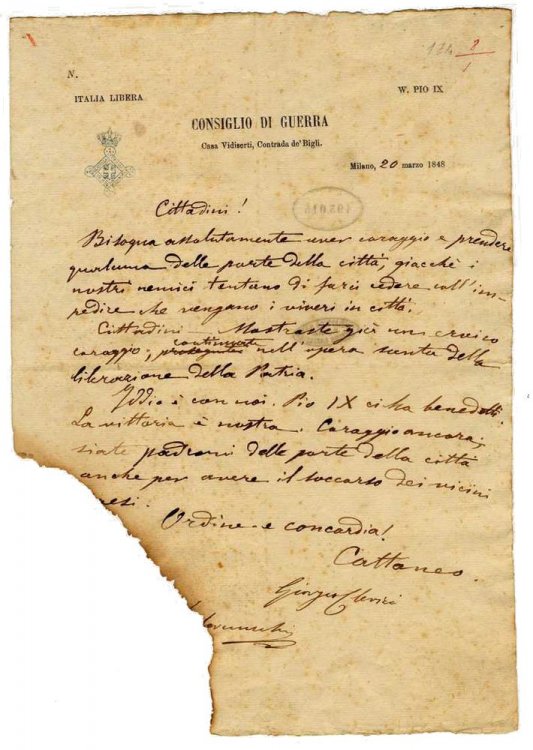 134 2/1
N.
ITALIA LIBERA
W. PIO IX
CONSIGLIO DI GUERRA
Casa Vidiserti, Contrada de' Bigli.
Milano, 20 marzo 1848
Cittadini!
Bisogna assolutamente aver coraggio e prendere
qualcuna delle porte della città, giacchè i
nostri nemici tentano di farci cedere coll'im-
pedire che vengano i viveri in città.
Cittadini Mostraste già un eroico
continuate
coraggio, nell'opera santa della
liberazione della Patria.
Iddio è con noi. Pio IX ci ha benedetti.
La vittoria è nostra. Coraggio ancora,
siate padroni delle porte della città
anche per avere il soccorso dei vicini
esi.
Ordine e concordia!
Cattaneo.
Giorgio Clerici